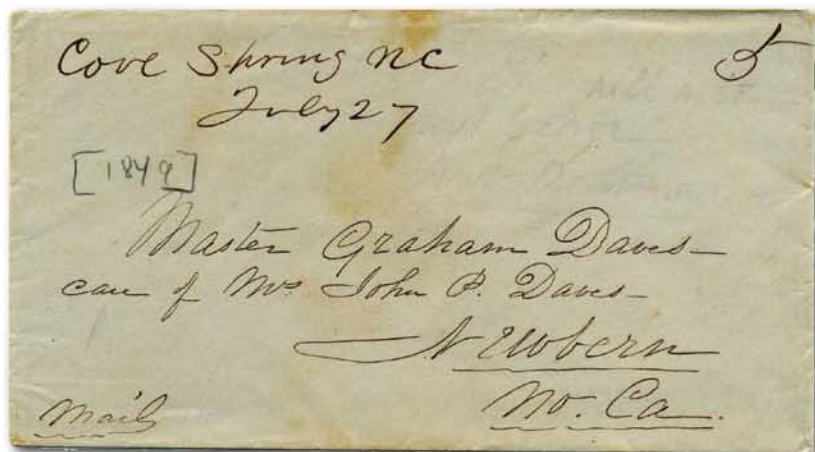 Cove Spring NC 5
July 27
[1849]
Master Graham Daves
care of Mrs John P. Daves
Newbern
No. Ca.
Mail